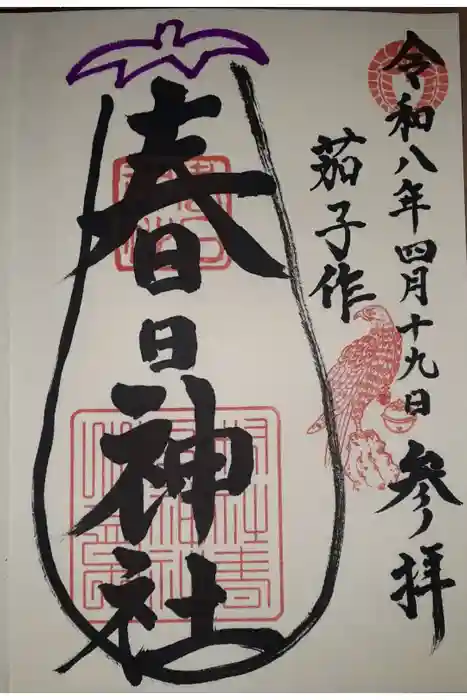 令和八年四月十九日 参拝
茄子作
春日神社